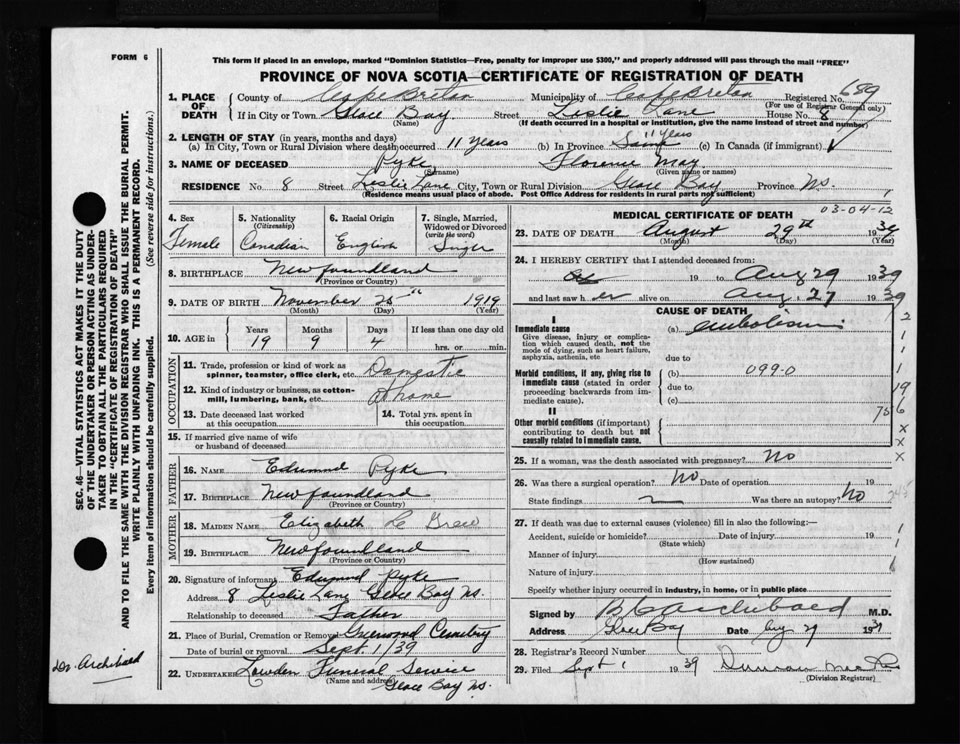 FORM 6
This form if placed in an envelope, marked "Dominion Statistics—Free, penalty for improper use $300," and properly addressed will pass through the mail "FREE"
PROVINCE OF NOVA SCOTIA—CERTIFICATE OF REGISTRATION OF DEATH
SEC. 46—VITAL STATISTICS ACT MAKES IT THE DUTY
OF THE UNDERTAKER OR PERSON ACTING AS UNDER-
TAKER TO OBTAIN ALL THE PARTICULARS REQUIRED
IN THE "CERTIFICATE OF REGISTRATION OF DEATH"
AND TO FILE THE SAME WITH THE DIVISION REGISTRAR WHO SHALL ISSUE THE BURIAL PERMIT.
WRITE PLAINLY WITH UNFADING INK. THIS IS A PERMANENT RECORD.
Every item of information should be carefully supplied. (See reverse side for instructions.)
Dr. Archibald
1. PLACE OF DEATH County of Cape Breton Municipality of Cape Breton Registered No. 689
(For use of Registrar General only)
If in City or Town Glace Bay Street Leslie Lane House No. 8
(Name) (If death occurred in a hospital or institution, give the name instead of street and number)
2. LENGTH OF STAY (in years, months and days)
(a) In City, Town or Rural Division where death occurred 11 Years (b) In Province Same 11 Years (c) In Canada (if immigrant)
3. NAME OF DECEASED Pyke Florence May
(Surname) (Given name or names)
RESIDENCE No. 8 Street Leslie Lane City, Town or Rural Division Glace Bay Province NS.
(Residence means usual place of abode. Post Office Address for residents in rural parts not sufficient)
4. Sex Female
5. Nationality (Citizenship) Canadian
6. Racial Origin English
7. Single, Married, Widowed or Divorced (write the word) Single
8. BIRTHPLACE Newfoundland
(Province or Country)
9. DATE OF BIRTH November 25th 1919
(Month) (Day) (Year)
10. AGE in Years 19 Months 9 Days 4 If less than one day old
hrs. or min.
OCCUPATION
11. Trade, profession or kind of work as spinner, teamster, office clerk, etc. Domestic
12. Kind of industry or business, as cotton-mill, lumbering, bank, etc. at home
13. Date deceased last worked at this occupation
14. Total yrs. spent in this occupation
15. If married give name of wife or husband of deceased
FATHER
16. NAME Edmund Pyke
17. BIRTHPLACE Newfoundland
(Province or Country)
MOTHER
18. MAIDEN NAME Elizabeth Le Grew
19. BIRTHPLACE Newfoundland
(Province or Country)
20. Signature of informant Edmund Pyke
Address 8 Leslie Lane Glace Bay NS.
Relationship to deceased Father
21. Place of Burial, Cremation or Removal Greenwood Cemetery
Date of burial or removal Sept. 1/39
22. UNDERTAKER Lowden Funeral Service
(Name and address) Glace Bay NS.
MEDICAL CERTIFICATE OF DEATH
03-04-12
23. DATE OF DEATH August 29th 1939
(Month) (Day) (Year)
24. I HEREBY CERTIFY that I attended deceased from
19 to Aug 29 1939
and last saw her alive on Aug. 27 1939
CAUSE OF DEATH
I
Immediate cause
Give disease, injury or complication which caused death, not the mode of dying, such as heart failure, asphyxia, asthenia, etc
(a) embolism
due to
Morbid conditions, if any, giving rise to immediate cause (stated in order proceeding backwards from immediate cause).
(b) 099-0
due to
(c)
II
Other morbid conditions (if important) contributing to death but not causally related to immediate cause.
25. If a woman, was the death associated with pregnancy? No
26. Was there a surgical operation? No Date of operation 19
State findings Was there an autopsy? No
27. If death was due to external causes (violence) fill in also the following:—
Accident, suicide or homicide? Date of injury 19
(State which)
Manner of injury
(How sustained)
Nature of injury
Specify whether injury occurred in industry, in home, or in public place
Signed by B C Archibald M.D.
Address Glace Bay Date Aug 29 1939
28. Registrar's Record Number
29. Filed Sept 1 1939 Duncan
(Division Registrar)